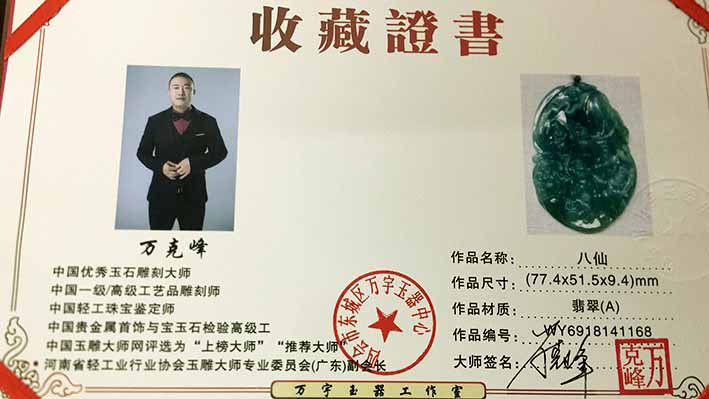 收藏證書
万克峰
中国优秀玉石雕刻大师
中国一级/高级工艺品雕刻师
中国轻工珠宝鉴定师
中国贵金属首饰与宝玉石检验高级工
中国玉雕大师网评选为“上榜大师”“推荐大师”
河南省轻工业行业协会玉雕大师专业委员会(广东)副会长
四会市东城区万宇玉器中心
作品名称： 八仙
作品尺寸： (77.4x51.5x9.4)mm
作品材质： 翡翠(A)
作品编号： WY6918141168
大师签名：
万克峰
万宇玉器工作室